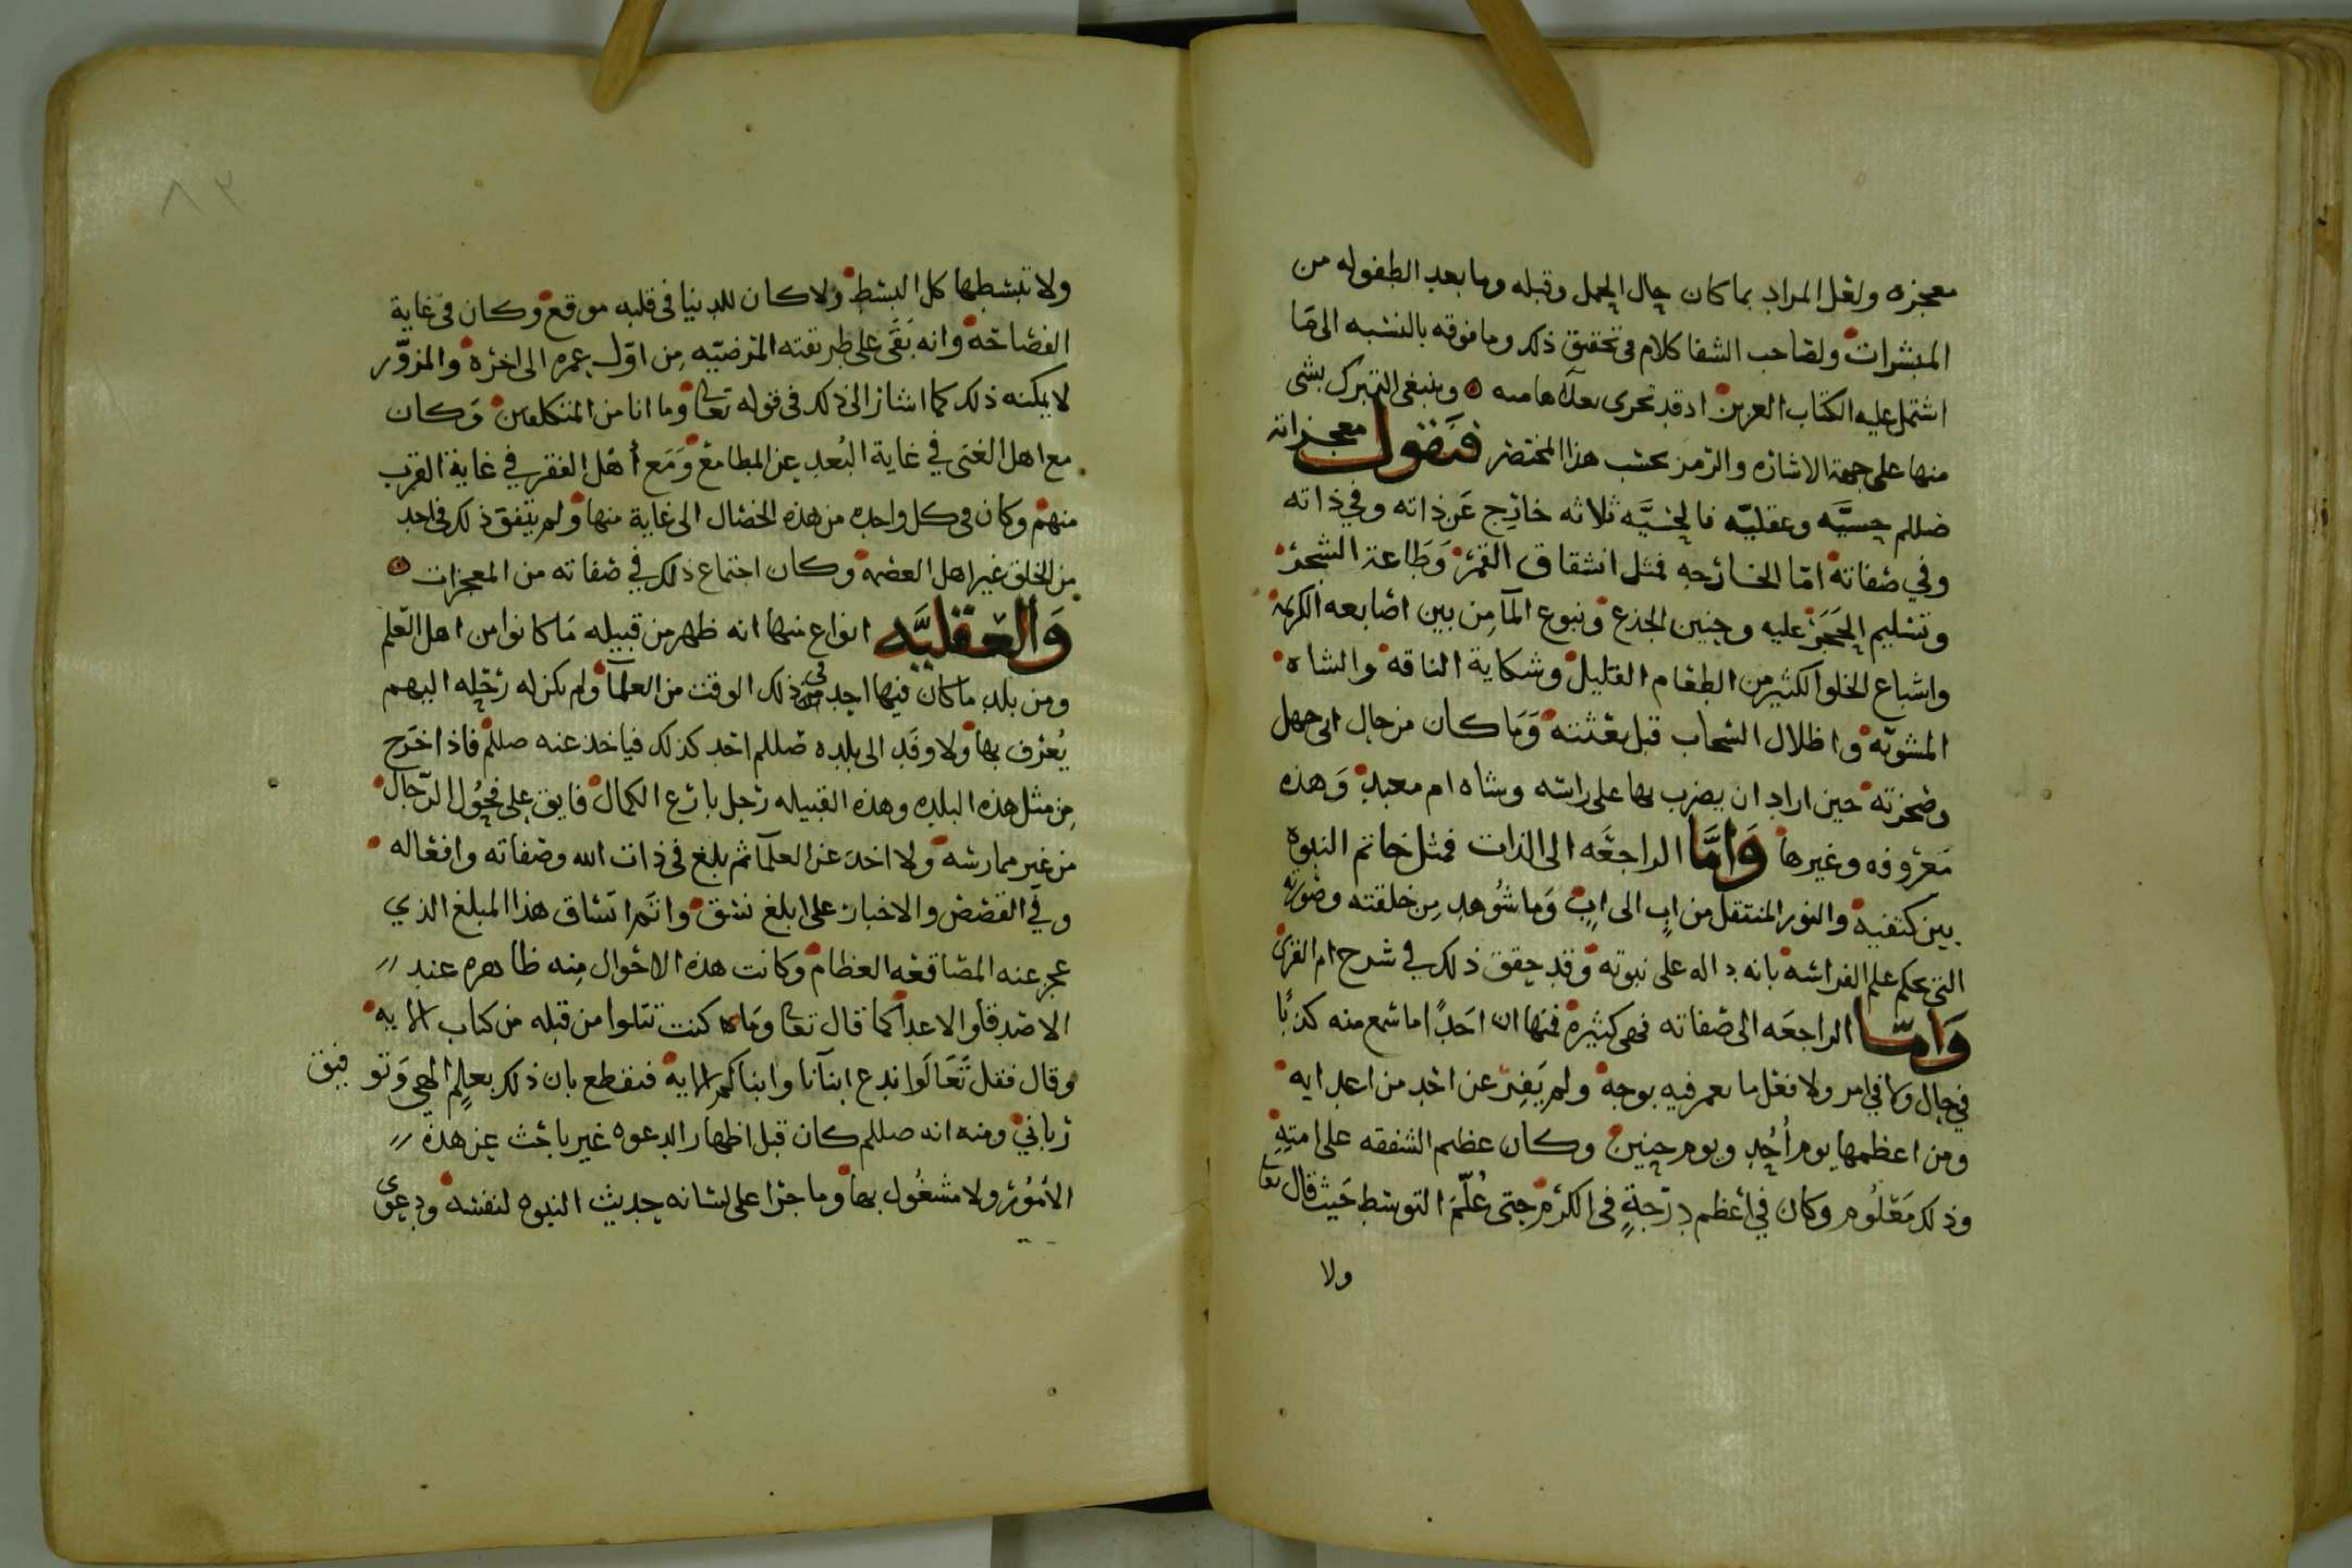 معجزه ولعل المراد بما كان حال الحمل وقبله وما بعد الطفوله من
المبشرات ولصاحب الشفا كلام في تحقيق ذلك وما فوقه بالنسبه الى ما
اشتمل عليه الكتاب العزيز اذ قد تحرى وينبغي التبرك بشي
منها على جهة الاشاره والرمز بحسب هذا المختصر فنقول معجزاته
صللم حسيّه وعقليّه فالحسيّه ثلاثه خارج عن ذاته وفي ذاته
وفي صفاته امّا الخارجه فمثل انشقاق القمر وطاعة الشجر
وتسليم الحجر عليه وحنين الجذع ونبوع المآ من بين اصابعه الكريمة
واشباع الخلق الكثير من الطعام القليل وشكاية الناقه والشاه
المشويّه واظلال السحاب قبل بعثته وما كان من حال ابي جهل
وصخرته حين اراد ان يضرب بها على راسه وشاه ام معبد وهذه
معروفه وغيرها وامّا الراجعه الى الذات فمثل خاتم النبوه
بين كتفيه والنور المنتقل من ابٍ الى ابٍ وما شوهد من خلقته وصورته
التي يحكم علم الفراسه بانه داله على نبوته وقد حقق ذلك في شرح ام القرى
وامّا الراجعه الى صفاته فهي كثيره فمنها ان احدًا ما سمع منه كذبًا
في حال ولا في امر ولا فعل ما يعير فيه بوجه ولم يَفِر عن احد من اعدايه
ومن اعظمها يوم أُحُد ويوم حنين وكان عظيم الشفقه على امتِهِ
وذلك معلُوم وكان في اعظم درجةٍ في الكرم حتى عُلّمَ التوسط حيث قال تعا
ولا
ولا تبسطها كل البسط ولا كان للدنيا في قلبه موقع وكان في غاية
الفصاحه وانه بَقَى على طريقته المرضيّه مِن اوّل عمره الى اخره والمزوّر
لا يمكنه ذلك كما اشار الى ذلك في قوله تعا وما انا من المتكلفين وكان
مع اهل الغنى في غاية البُعد عن المطامع ومَع أهل الفقر في غاية القرب
منهم وكان في كل واحده من هذه الخصال الى غاية منها ولم يتفق ذلك في احد
من الخلق غير اهل العصمه وكان اجتماع ذلك في صفاته من المعجزات
والعقليّه انواع منها انه ظهر من قبيله مَا كانوا من اهل العلم
ومن بلد ما كان فيها احد في ذلك الوقت من العلمآ ولم يكن له رحله اليهم
يُعرف بها ولا وفَد الى بلده صللم احد كذلك فياخذ عنه صللم فاذا خرج
مِن مثل هذه البلده وهذه القبيله رجل بارع الكمال فايق على فحُول الرّجال
من غير ممارسه ولا اخذ عن العلمآ ثم بلغ في ذات الله وصفاته وافعاله
وفي القصص والاخبار على ابلغ نسق واتم اتساق هذا المبلغ الذي
عجز عنه المصاقعه العظام وكانت هذه الاحوال مِنه ظاهره عند
الاصدقآ والاعدآ كما قال تعا ومَا كنت تتلوا من قبله من كتاب الايه
وقال فقل تعَالَوا ندع ابنآنا وابناكم الايه فنقطع بان ذلك بعلمٍ الهي وتوفيق
رباني ومنه انه صللم كان قبل اظهار الدعوه غير باحث عن هذه
الأمُور ولا مشغُول بها وما جرا على لسانه حديث النبوه لنفسه ودعوى